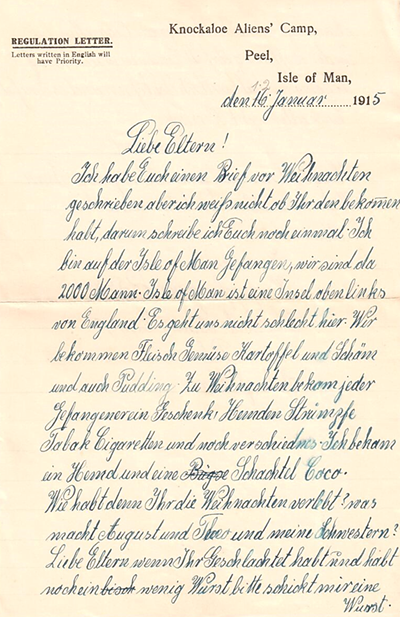 Knockaloe Aliens' Camp,
REGULATION LETTER.
Peel,
Letters written in English will
have Priority.
Isle of Man,
den 16. Januar 1915
Liebe Eltern!
Ich habe Euch einen Brief vor Weihnachten
geschrieben aber ich weiß nicht ob Ihr den bekommen
habt, darum schreibe ich Euch noch einmal. Ich
bin auf der Isle of Man Gefangen, wir sind da
2000 Mann. Isle of Man ist eine Insel oben links
von England. Es geht uns nicht schlecht hier. Wir
bekommen Fleisch Gemüse Kartoffel und
und auch Pudding. Zu Weihnachten bekam jeder
Gefangener ein Geschenk! Hemden Strümpfe
Tabak Cigaretten und noch verschiednes. Ich bekam
ein Hemd und eine Schachtel Coco.
Wie habt denn Ihr die Weihnachten verlebt? was
macht August und Theo und meine Schwestern?
Liebe Eltern wenn Ihr Geschlachtet habt und habt
noch ein bisch wenig Wurst bitte schickt mir eine
Wurst.